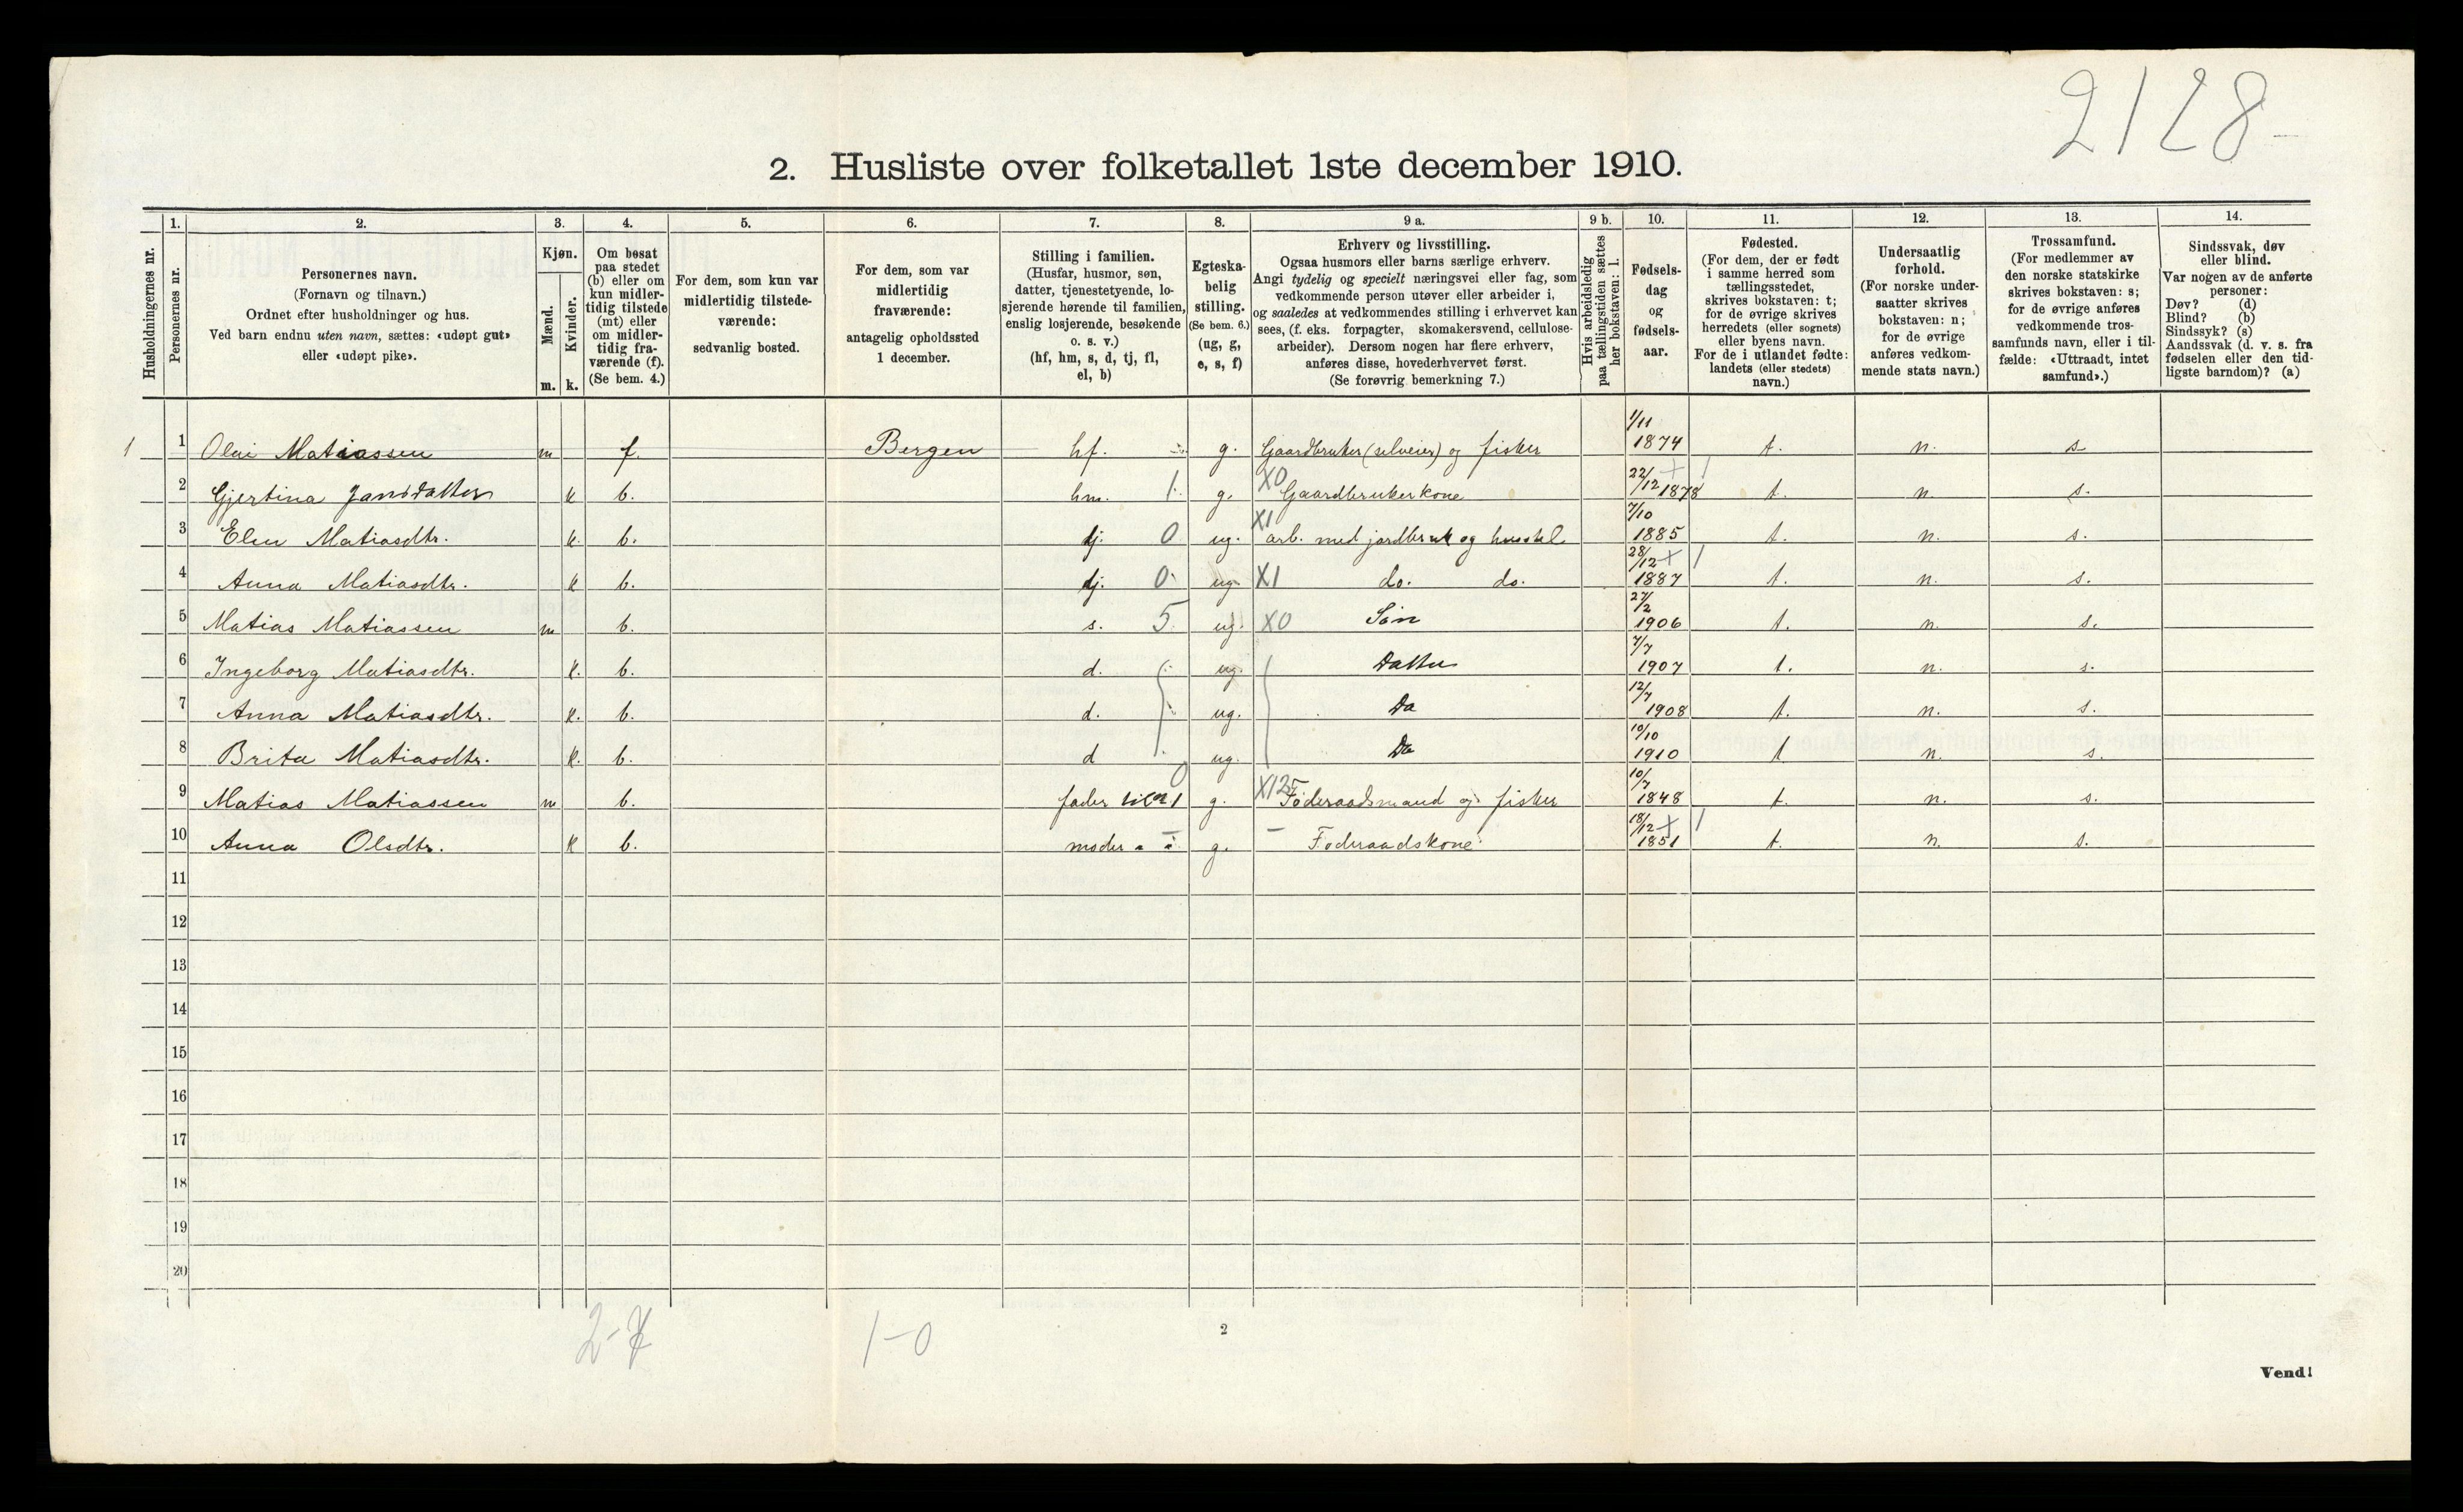 2128-
2. Husliste over folketallet 1ste december 1910.
Husholdningernes nr.
1.
Personernes nr.
2.
Personernes navn.
(Fornavn og tilnavn.)
Ordnet efter husholdninger og hus.
Ved barn endnu uten navn, sættes: «udøpt gut»
eller «udøpt pike».
3.
Kjøn.
Mænd.
m.
Kvinder.
k.
4.
Om bosat
paa stedet
(b) eller om
kun midler-
tidig tilstede
(mt) eller
om midler-
tidig fra-
værende (f).
(Se bem. 4.)
5.
For dem, som kun var
midlertidig tilstede-
værende:
sedvanlig bosted.
6.
For dem, som var
midlertidig
fraværende:
antagelig opholdssted
1 december.
7.
Stilling i familien.
(Husfar, husmor, søn,
datter, tjenestetyende, lo-
sjerende hørende til familien,
enslig losjerende, besøkende
o. s. v.)
(hf, hm, s, d, tj, fl,
el, b)
8.
Egteska-
belig
stilling.
(Se bem. 6.)
(ug, g,
e, s, f)
9 a.
Erhverv og livsstilling.
Ogsaa husmors eller barns særlige erhverv.
Angi tydelig og specielt næringsvei eller fag, som
vedkommende person utøver eller arbeider i,
og saaledes at vedkommendes stilling i erhvervet kan
sees, (f. eks. forpagter, skomakersvend, cellulose-
arbeider). Dersom nogen har flere erhverv,
anføres disse, hovederhvervet først.
(Se forøvrig bemerkning 7.)
9 b.
Hvis arbeidsledig
paa tællingstiden sættes
her bokstaven: l.
10.
Fødsels-
dag
og
fødsels-
aar.
11.
Fødested.
(For dem, der er født
i samme herred som
tællingsstedet,
skrives bokstaven: t;
for de øvrige skrives
herredets (eller sognets)
eller byens navn.
For de i utlandet fødte:
landets (eller stedets)
navn.)
12.
Undersaatlig
forhold.
(For norske under-
saatter skrives
bokstaven: n;
for de øvrige
anføres vedkom-
mende stats navn.)
13.
Trossamfund.
(For medlemmer av
den norske statskirke
skrives bokstaven: s;
for de øvrige anføres
vedkommende tros-
samfunds navn, eller i til-
fælde: «Uttraadt, intet
samfund».)
14.
Sindssvak, døv
eller blind.
Var nogen av de anførte
personer:
Døv? (d)
Blind? (b)
Sindssyk? (s)
Aandssvak (d. v. s. fra
fødselen eller den tid-
ligste barndom)? (a)
1 1 Olai Matiassen m f. Bergen hf. g. Gaardbruker (selveier) og fisker 1/11 1874 t. n. s
2 Gjertina Jansdatter k b. hm. 1 g. X0 Gaardbrukerkone 22/12 1878 + / t. n. s.
3 Elen Matiasdtr. k. b. tj. 0 ug. X1 arb. med jordbruk og husstel 7/10 1885 t. n. s.
4 Anna Matiasdtr. k b. tj. 0 ug. X1 do. do. 28/12 + / 1887 t. n. s.
5 Matias Matiassen m b. s. 5 ug. X0 Søn 27/2 1906 t. n. s.
6 Ingeborg Matiasdtr. k. b. d. ug. Datter 7/7 1907 t. n. s.
7 Anna Matiasdtr. k. b. d. ug. Do 12/7 1908 t. n. s.
8 Brita Matiasdtr. k. b. d ug. Do 10/10 1910 t n. s.
9 Matias Matiassen m b. fader til no 1 0 g. X125 Føderaadsmand og fisker 10/7 1848 t. n. s.
10 Anna Olsdtr. k b. moder " " g. - Føderaadskone 18/12 + / 1851 t. n. s.
11
12
13
14
15
16
17
18
19
20
2-7 1-0
2
Vend!